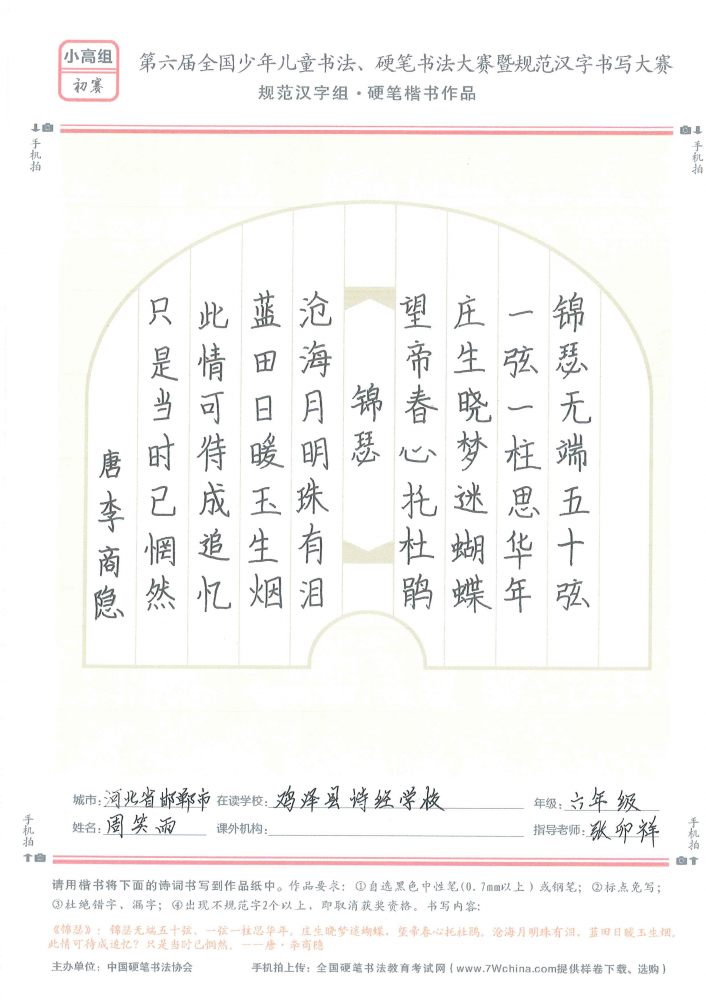 小高组
初赛
第六届全国少年儿童书法、硬笔书法大赛暨规范汉字书写大赛
规范汉字组·硬笔楷书作品
手机拍
手机拍
锦瑟无端五十弦
一弦一柱思华年
庄生晓梦迷蝴蝶
望帝春心托杜鹃
锦瑟
沧海月明珠有泪
蓝田日暖玉生烟
此情可待成追忆
只是当时已惘然
唐李商隐
城市:河北省邯郸市 在读学校:鸡泽县诗经学校 年级:六年级
姓名:周笑雨 课外机构: 指导老师:张卯祥
手机拍
手机拍
请用楷书将下面的诗词书写到作品纸中。作品要求:①自选黑色中性笔(0.7mm以上)或钢笔;②标点免写;
③杜绝错字、漏字;④出现不规范字2个以上,即取消获奖资格。书写内容:
《锦瑟》:锦瑟无端五十弦,一弦一柱思华年。庄生晓梦迷蝴蝶,望帝春心托杜鹃。沧海月明珠有泪,蓝田日暖玉生烟。
此情可待成追忆?只是当时已惘然。——唐·李商隐
主办单位:中国硬笔书法协会 手机拍上传:全国硬笔书法教育考试网(www.7Wchina.com提供样卷下载、选购)